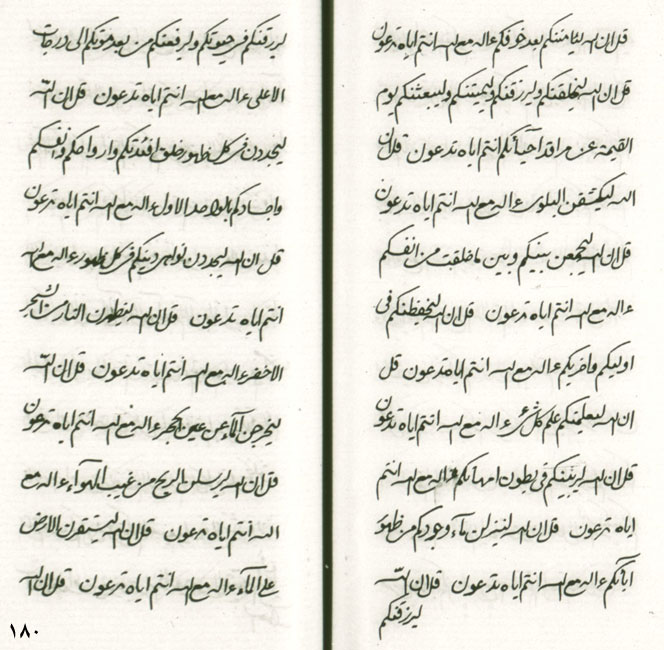 قل ان الله ليامننكم بعد خوفكم ءاله مع الله انتم اياه تدعون
قل ان الله ليخلقنكم وليرزقنكم وليميتنكم وليبعثنكم يوم
القيمة عن مراقد احيائكم انتم اياه تدعون قل ان
الله ليكشفن البلوى ءاله مع الله انتم اياه تدعون
قل ان الله ليجمعن بينكم وبين ما خلقت من انفسكم
ءاله مع الله انتم اياه تدعون قل ان الله ليحفظنكم في
اوليكم واخريكم ءاله مع الله انتم اياه تدعون قل
ان الله ليعلمنكم علم كل شيء ءاله مع الله انتم اياه تدعون
قل ان الله ليربينكم في بطون امهاتكم ءاله مع الله انتم
اياه تدعون قل ان الله لينزلن ماء وجودكم من ظهور
ابائكم ءاله مع الله انتم اياه تدعون قل ان الله
ليرزقنكم
ليرزقنكم في حيوتكم وليرفعنكم من بعد موتكم الى درجات
الاعلى ءاله مع الله انتم اياه تدعون قل ان الله
ليجددن في كل ظهور خلق افئدتكم وارواحكم وانفسكم
واجسادكم بالواحد الاول ءاله مع الله انتم اياه تدعون
قل ان الله ليجددن نواهر دينكم في كل ظهور ءاله مع الله
انتم اياه تدعون قل ان الله ليظهرن النار من الشجر
الاخضر ءاله مع الله انتم اياه تدعون قل ان الله
ليخرجن الماء عن عين الحجر ءاله مع الله انتم اياه تدعون
قل ان الله ليرسلن الريح من غيب الهواء ءاله مع
الله انتم اياه تدعون قل ان الله ليستقرن الارض
على الماء ءاله مع الله انتم اياه تدعون قل ان الله
١٨٠